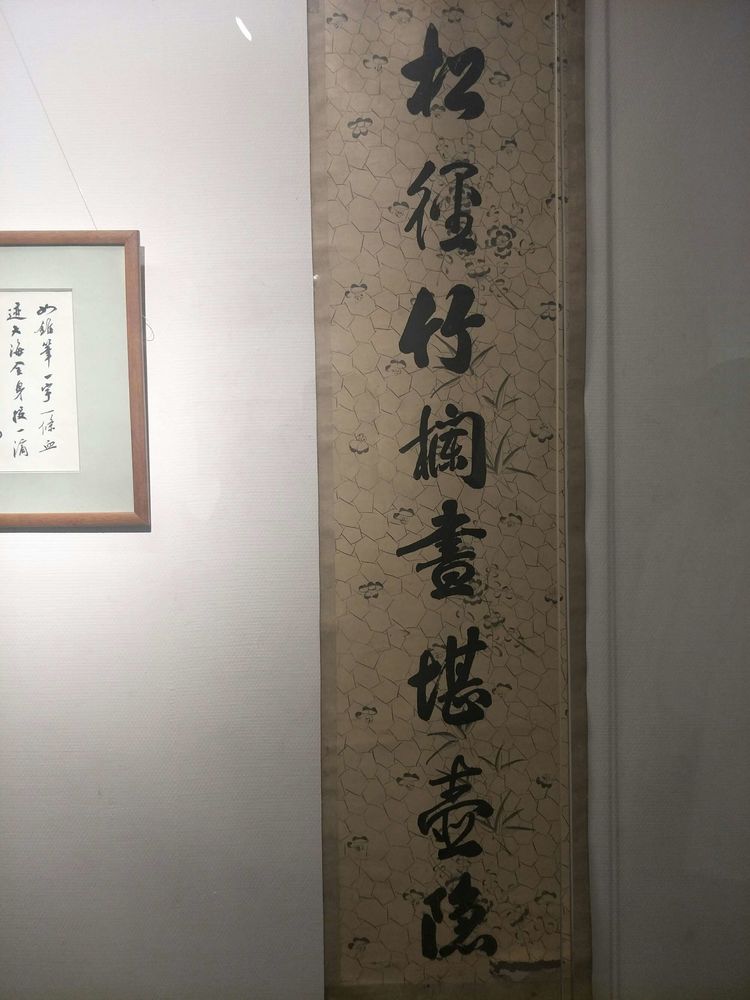 松徑竹欄晝堪壺隱
如錐筆一字一條血
迹大海全身後一滴